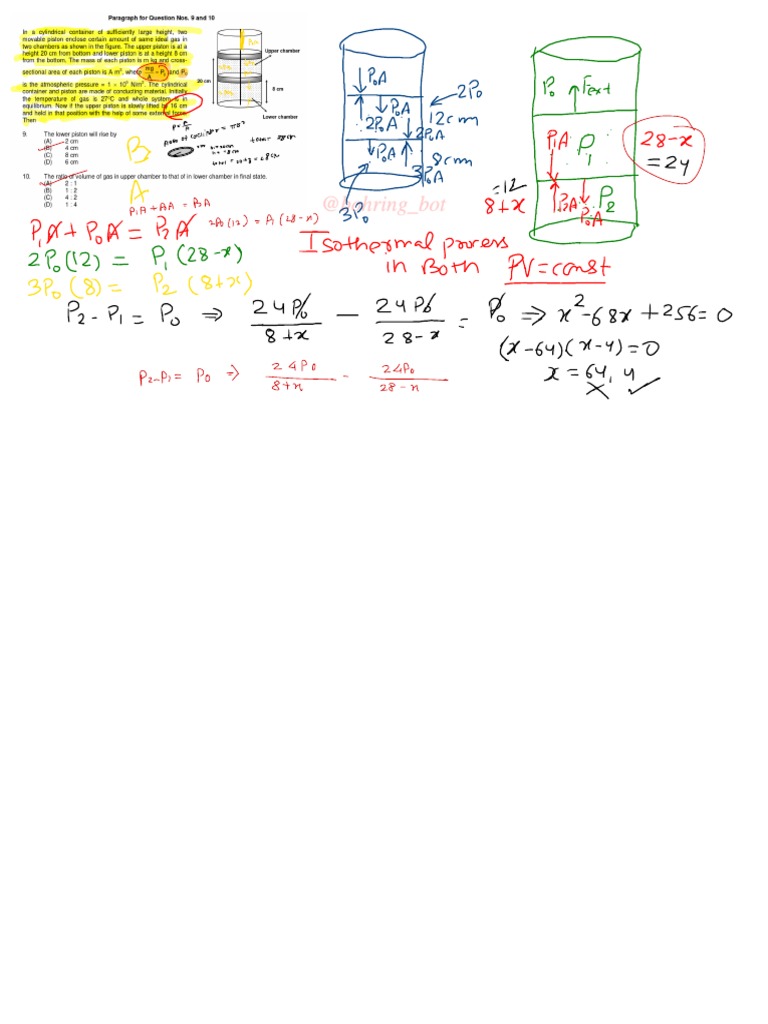 Paragraph for Question Nos. 9 and 10
In a cylindrical container of sufficiently large height, two
movable piston enclose certain amount of same ideal gas in
two chambers as shown in the figure. The upper piston is at a
height 20 cm from bottom and lower piston is at a height 8 cm
from the bottom. The mass of each piston is m kg and cross-
sectional area of each piston is A m², where mg/A = P₀ and P₀
is the atmospheric pressure = 1 × 10⁵ N/m². The cylindrical
container and piston are made of conducting material. Initially
the temperature of gas is 27°C and whole system is in
equilibrium. Now if the upper piston is slowly lifted by 16 cm
and held in that position with the help of some external force.
Then
Upper chamber
20 cm
8 cm
Lower chamber
9. The lower piston will rise by
(A) 2 cm
(B) 4 cm
(C) 8 cm
(D) 6 cm
B
10. The ratio of volume of gas in upper chamber to that of in lower chamber in final state.
(A) 2 : 1
(B) 1 : 2
(C) 4 : 2
(D) 1 : 4
A
P₀A
P₀A
2P₀
12cm
2P₀A
2P₀A
P₀A
8cm
3P₀A
3P₀
P₀ Fext
P₁A P₁
28-x
= 24
=12
8+x
P₂A P₂
P₀A
@bohring_bot
P₁A + P₀A = P₂A
2P₀(12) = P₁(28-x)
3P₀(8) = P₂(8+x)
Isothermal process
in Both PV=const
P₂-P₁ = P₀ ⇒ 24P₀/8+x - 24P₀/28-x = P₀ ⇒ x²-68x+256=0
(x-64)(x-4)=0
x = 64, 4
P₂-P₁ = P₀ ⇒ 24P₀/8+x - 24P₀/28-x